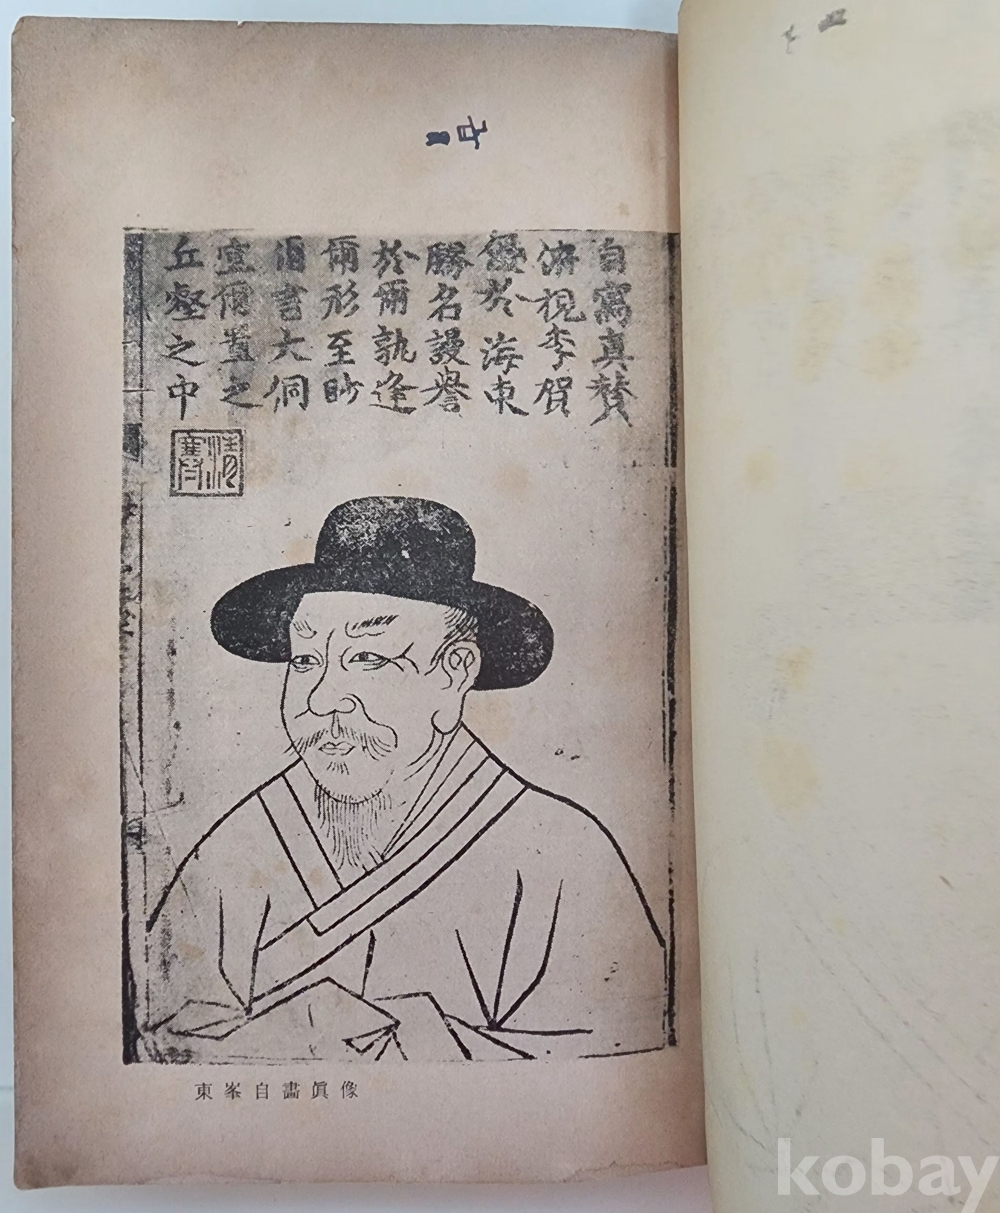 自寫真贊
俯視李賀
優於海東
騰名謾譽
於爾孰逢
爾形至眇
爾言大侗
宜爾置之
丘壑之中
清寒
東峯自畵眞像
kobay